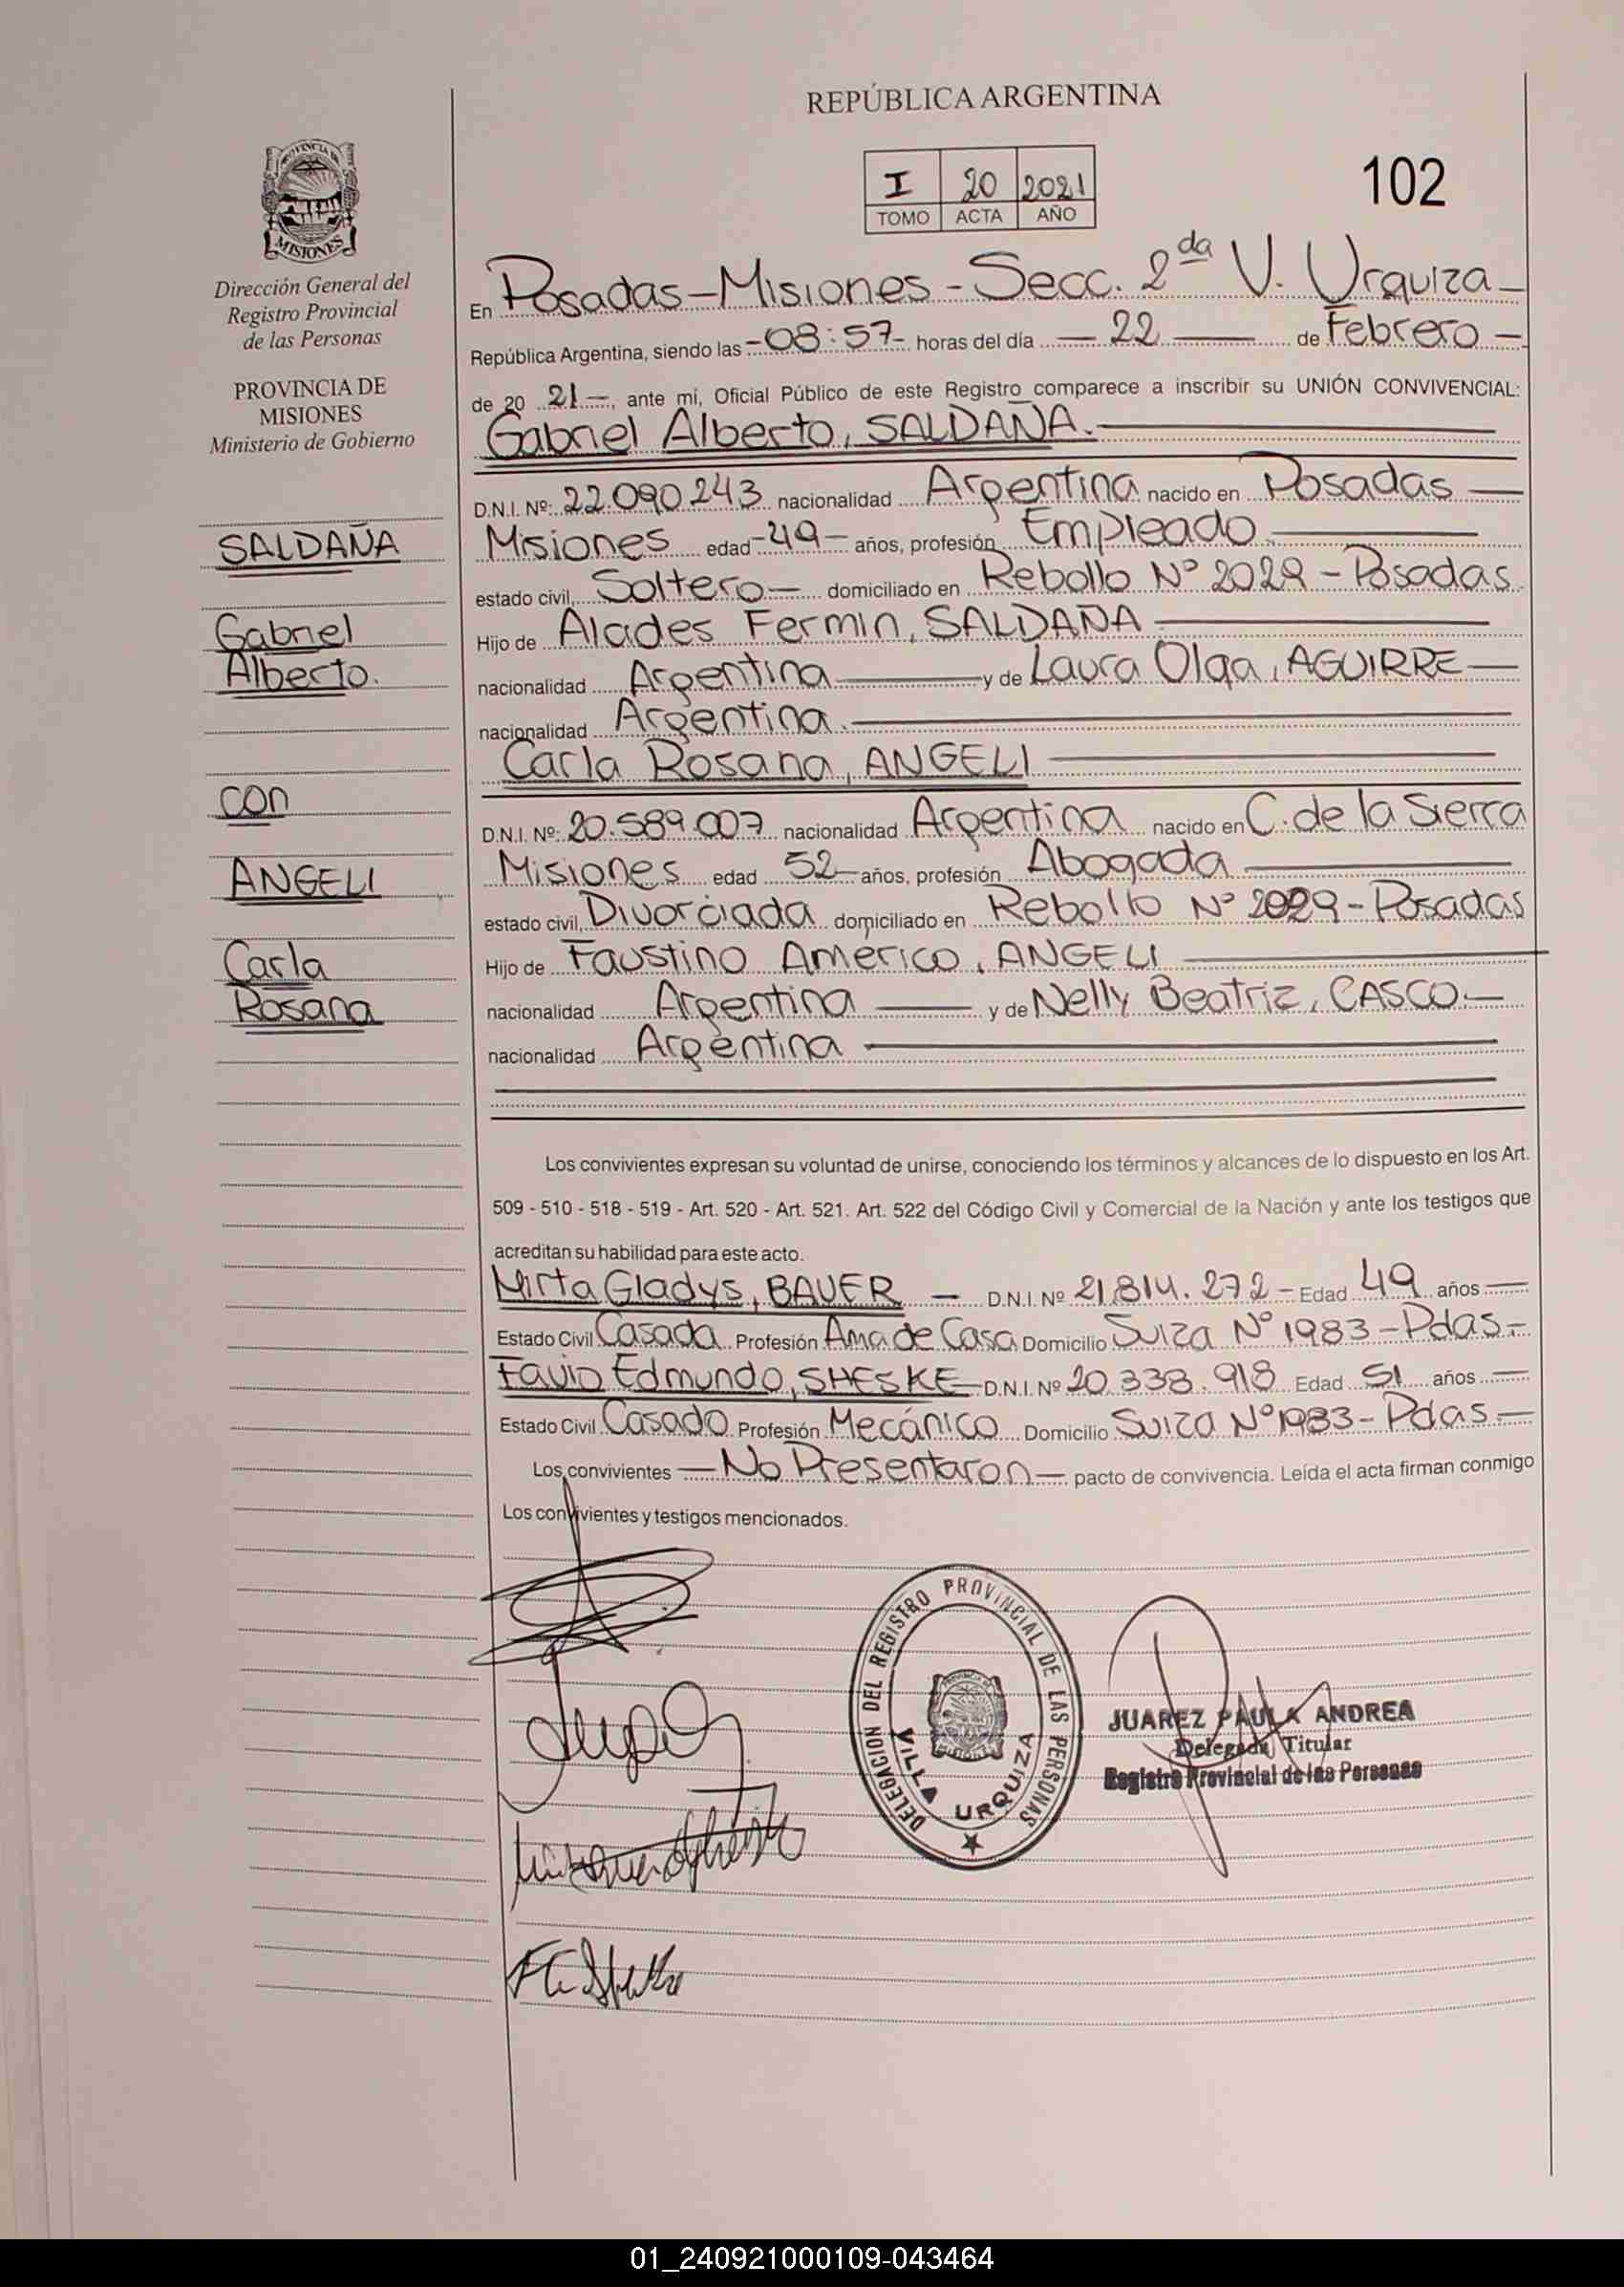 REPÚBLICA ARGENTINA
I 20 2021
TOMO ACTA AÑO
102
PROVINCIA DE
MISIONES
Dirección General del
Registro Provincial
de las Personas
PROVINCIA DE
MISIONES
Ministerio de Gobierno
SALDAÑA
Gabriel
Alberto.
con
ANGELI
Carla
Rosana
En Posadas-Misiones-Secc. 2da V. Urquiza-
República Argentina, siendo las -08:57- horas del día — 22 — de Febrero -
de 20 21-, ante mí, Oficial Público de este Registro comparece a inscribir su UNIÓN CONVIVENCIAL:
Gabriel Alberto, SALDAÑA.
D.N.I. Nº: 22.090.243 nacionalidad Argentina nacido en Posadas —
Misiones edad -49- años, profesión Empleado
estado civil, Soltero- domiciliado en Rebollo Nº 2029 - Posadas
Hijo de Alcides Fermin, SALDAÑA
nacionalidad Argentina y de Laura Olga, AGUIRRE-
nacionalidad Argentina.
Carla Rosana, ANGELI
D.N.I. Nº: 20.589.007 nacionalidad Argentina nacido en C. de la Sierra
Misiones edad 52- años, profesión Abogada
estado civil, Divorciada domiciliado en Rebollo Nº 2029-Posadas
Hijo de Faustino Americo, ANGELI
nacionalidad Argentina — y de Nelly Beatriz, CASCO.-
nacionalidad Argentina
Los convivientes expresan su voluntad de unirse, conociendo los términos y alcances de lo dispuesto en los Art.
509 - 510 - 518 - 519 - Art. 520 - Art. 521. Art. 522 del Código Civil y Comercial de la Nación y ante los testigos que
acreditan su habilidad para este acto.
Mirta Gladys, BAUER - D.N.I. Nº 21.814.272 - Edad 49 años
Estado Civil Casada Profesión Ama de Casa Domicilio Suiza Nº 1983-Pdas-
Favio Edmundo, SHESKE- D.N.I. Nº 20.338.918 Edad 51 años
Estado Civil Casado Profesión Mecánico Domicilio Suiza Nº 1983-Pdas-
Los convivientes -No Presentaron- pacto de convivencia. Leída el acta firman conmigo
Los convivientes y testigos mencionados.
DELEGACION DEL REGISTRO PROVINCIAL DE LAS PERSONAS
VILLA URQUIZA
JUAREZ PAULA ANDREA
Delegada Titular
Registro Provincial de las Personas
01_240921000109-043464